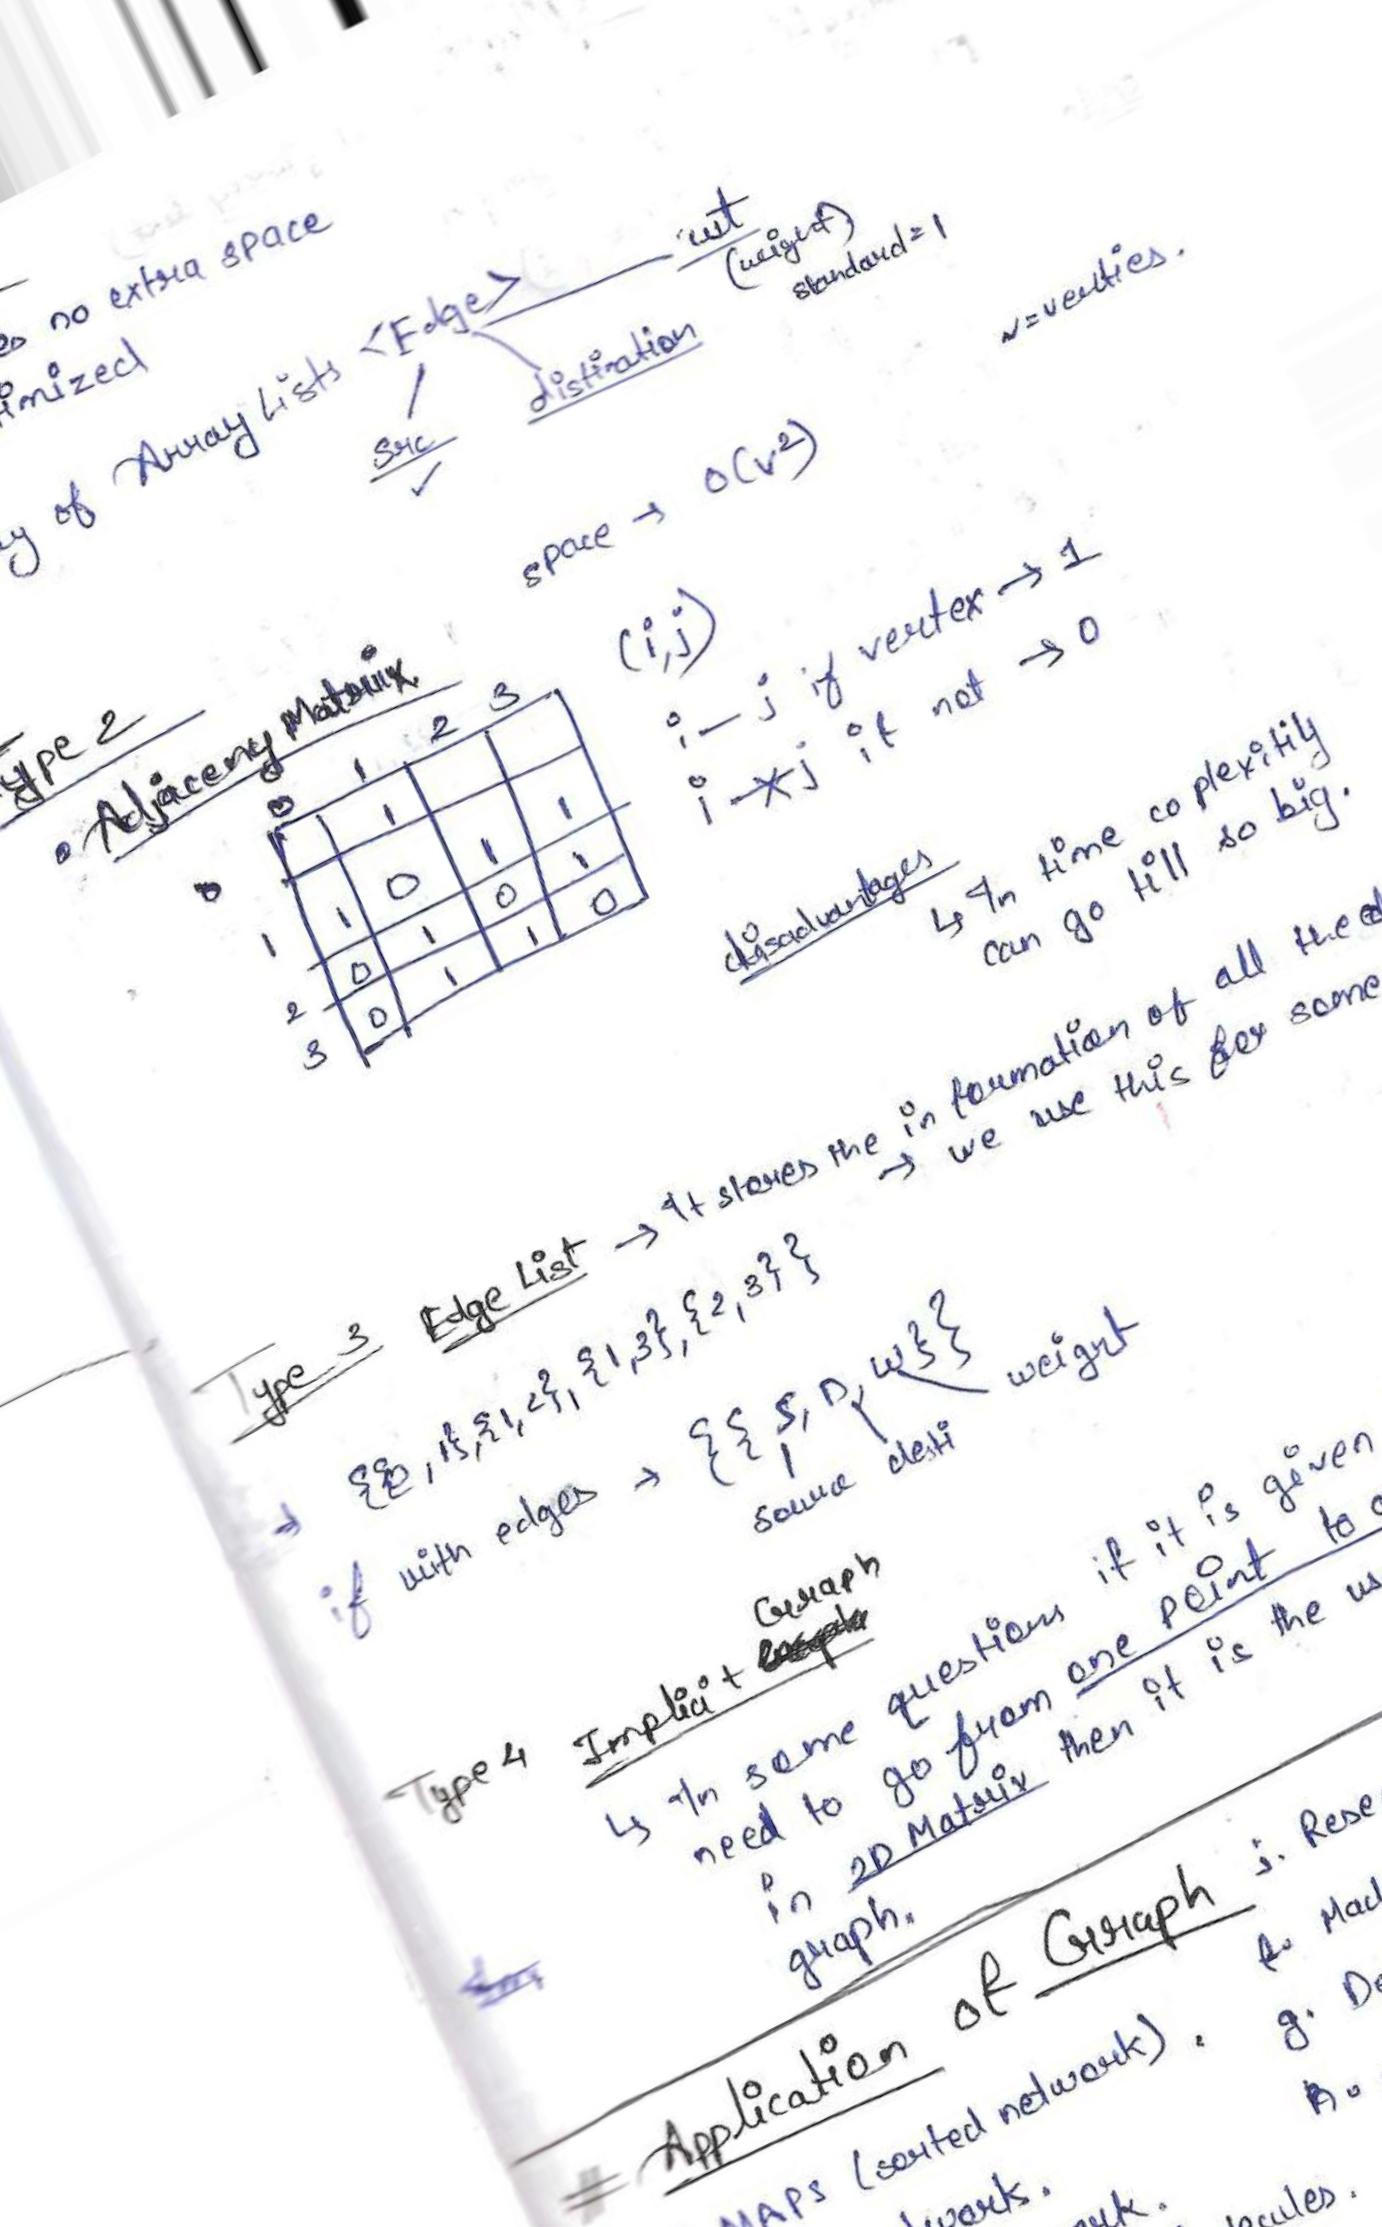 no extra space
imized
of Array Lists <Edge>
wt
(weight)
standard = 1
src ✓
distination
v = verties.
space → O(v²)
Type 2
• Adjaceny Matrix
0 1 2 3
0 1
1 1 0 1 1
2 0 1 0 1
3 0 1 1 0
(i,j)
i — j if vertex → 1
i -x j if not → 0
disadvantages
↳ In time coplexitily
can go till so big.
Type 3 Edge List → It stores the information of all the
→ we use this for some
→ {{0,1},{1,2},{1,3},{2,3}}
if with edges → {{S, D, W}}
source desti weight
Type 4 Implicit Graph
↳ In some questions if it is given
need to go from one point to
in 2D Matrix then it is the
graph.
# Application of Graph
MAPS (sorted network).
g.
h.